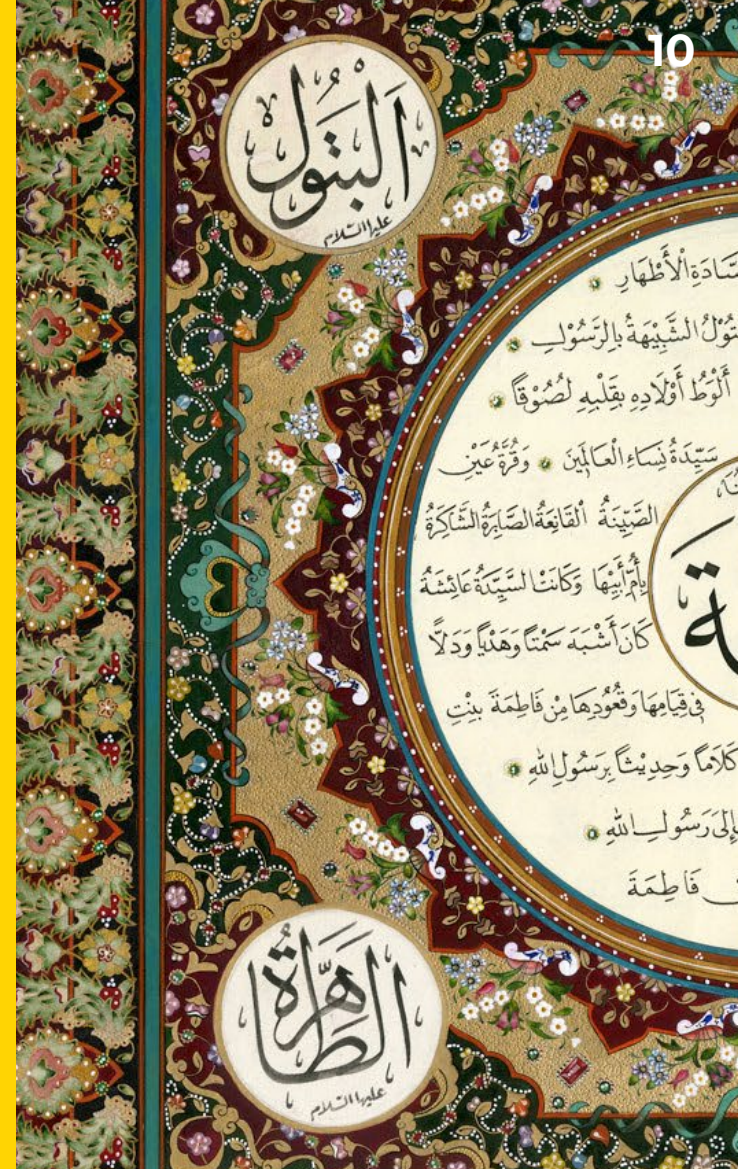 10
البَتوَل
عليها السّلام
السَّادَةِ الْأَطْهَارِ
الشَّبِيْهَةُ بِالرَّسُوْلِ
أَلْوَطُ أَوْلَادِهِ بِقَلْبِهِ لُصُوْقًا
سَيِّدَةُ نِسَاءِ الْعَالَمِيْنَ وَقُرَّةُ عَيْنِ
الصَّيِّنَةُ الْقَانِعَةُ الصَّابِرَةُ الشَّاكِرَةُ
بِأُمِّ أَبِيْهَا وَكَانَتْ السَّيِّدَةُ عَائِشَةُ
كَانَ أَشْبَهَ سَمْتًا وَهَدْيًا وَدَلًّا
فِي قِيَامِهَا وَقُعُوْدِهَا مِنْ فَاطِمَةَ بِنْتِ
كَلَامًا وَحَدِيْثًا بِرَسُوْلِ اللهِ
إِلَى رَسُوْلِ اللهِ
فَاطِمَةَ
ة
الطَّاهِرَةُ
عليها السّلام